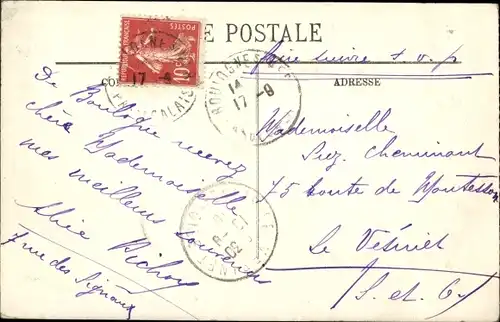 E POSTALE
faire suivre s.v.p
ADRESSE
POSTES
10
17 - 8
PAS-DE-CALAIS
BOULOGNE-S-MER
14
17 - 8
De Boulogne recevez
chère Mademoiselle
mes meilleurs souvenirs
Alice
7 rue des Signaux
Mademoiselle
Suz. Cheminant
75 route de Montesson
Le Vésinet
S. et O.